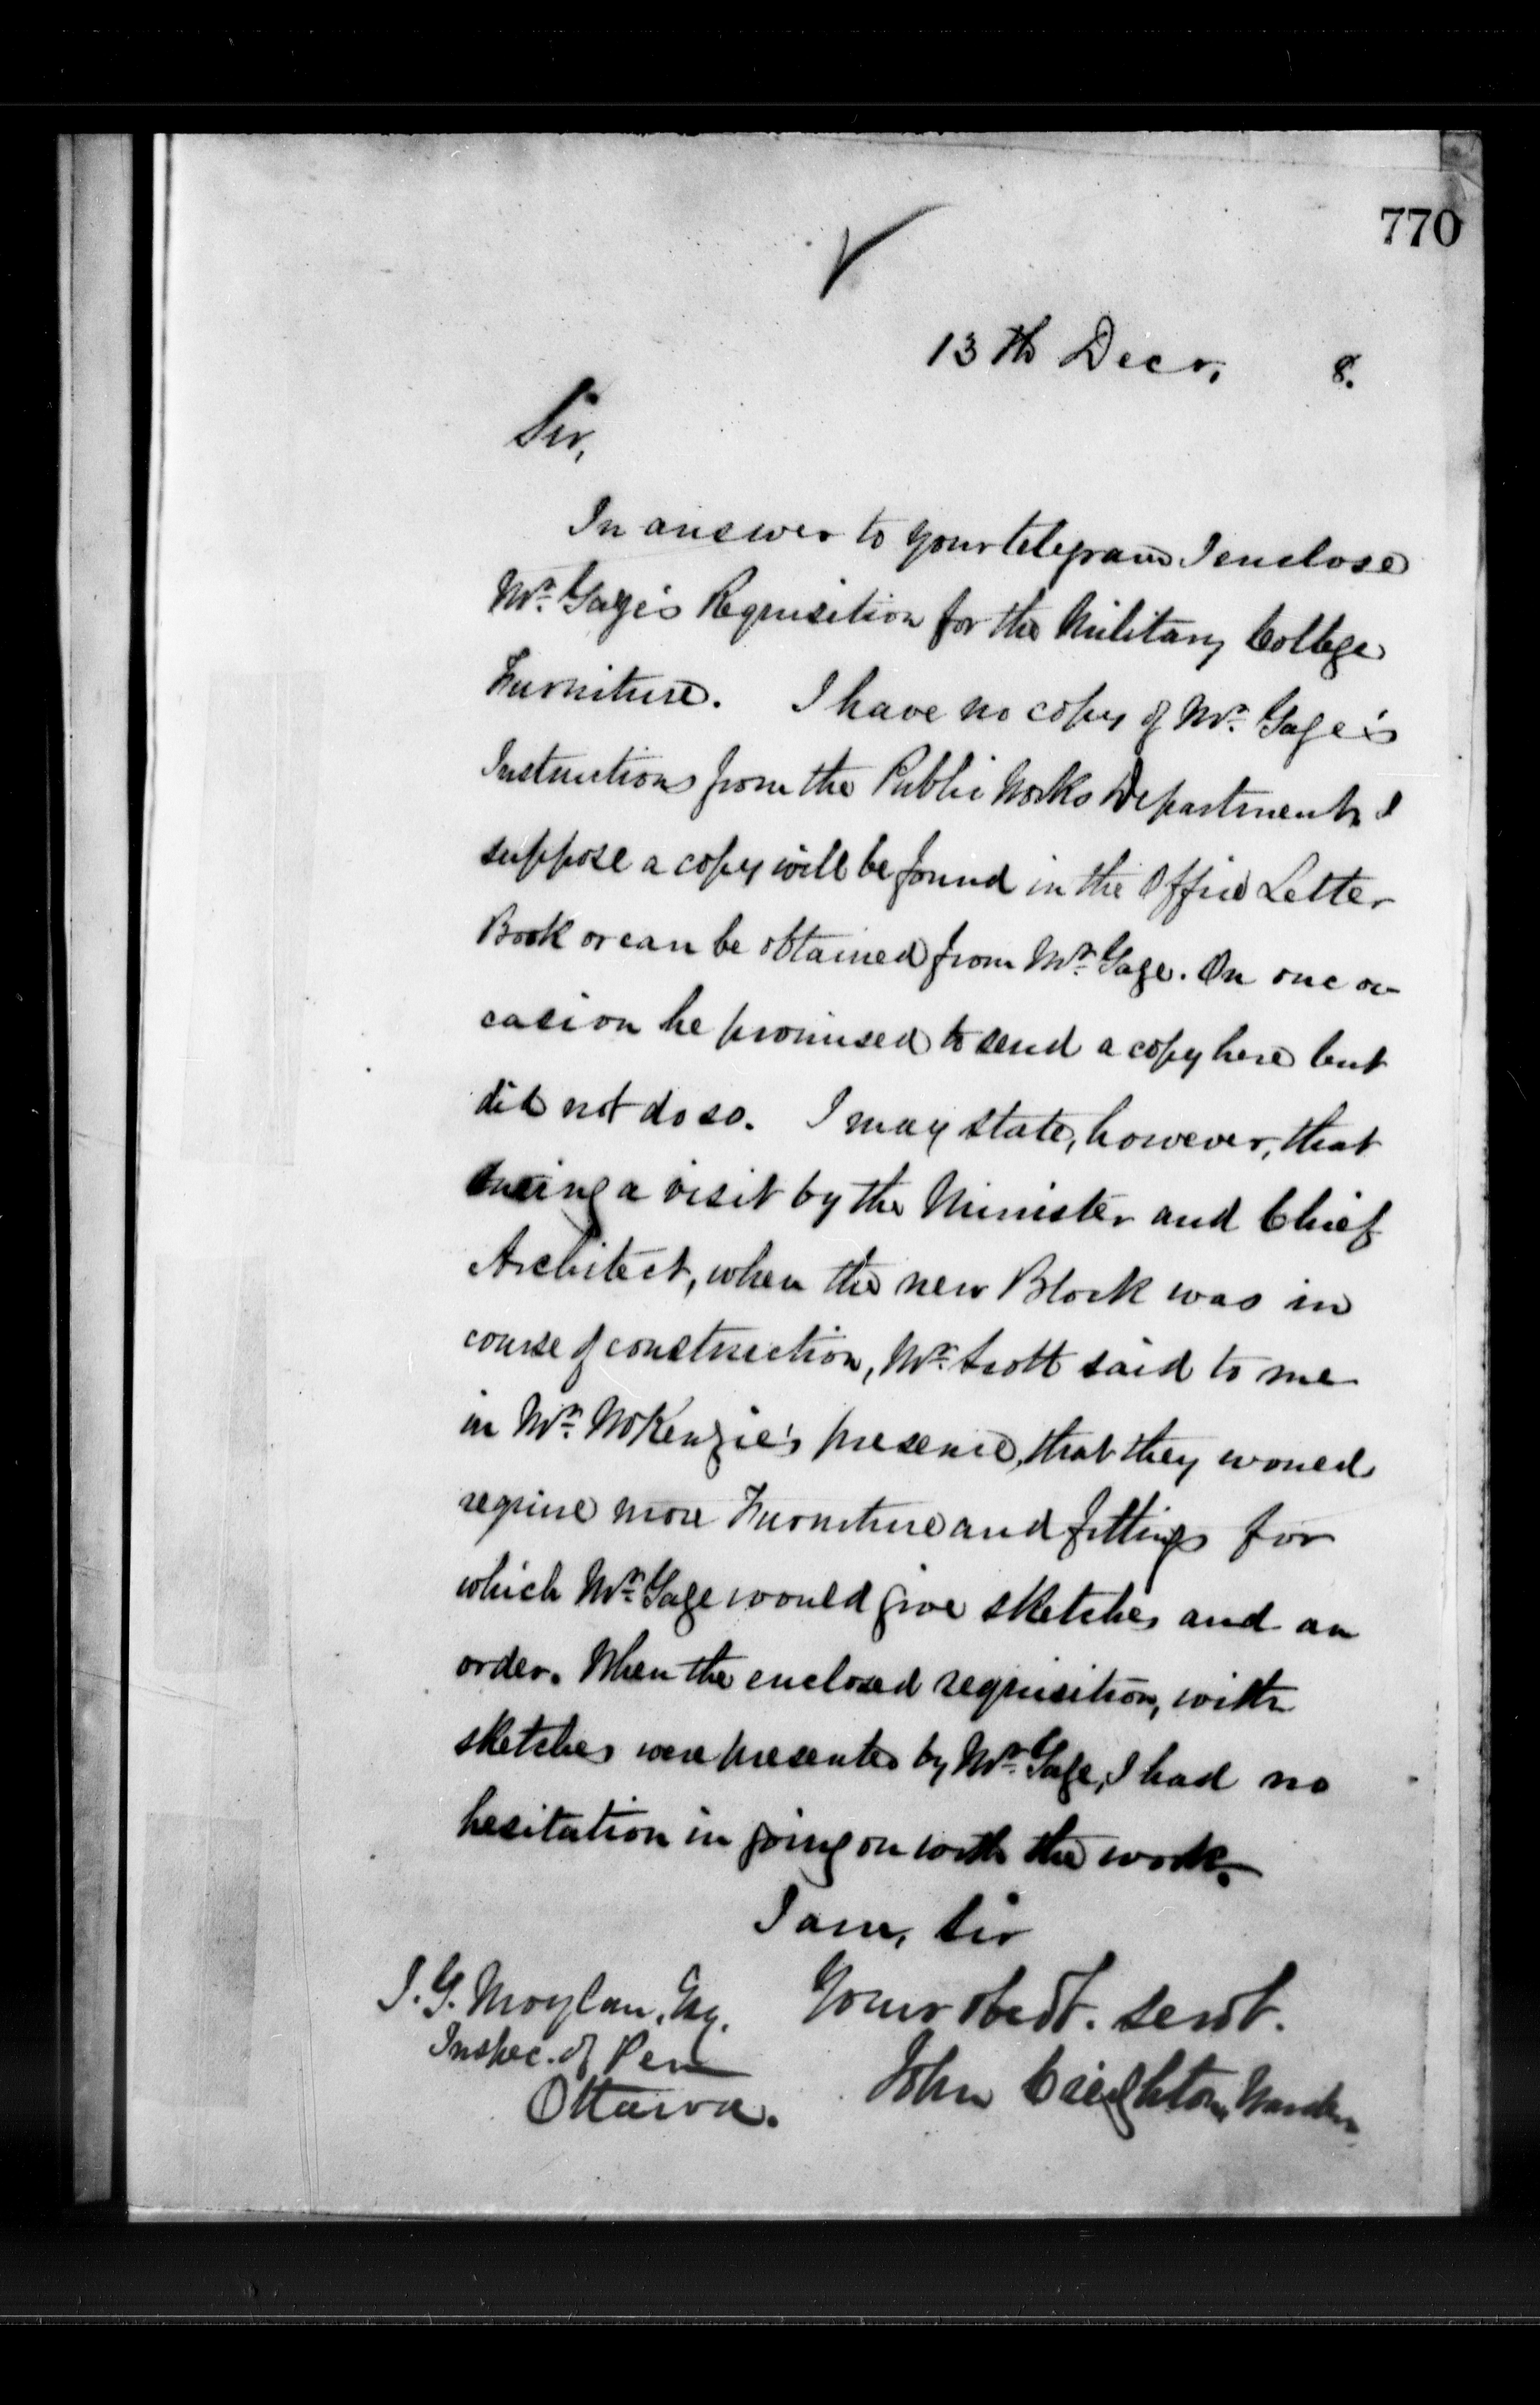 770
13th Decr, 8.
Sir,
In answer to your telegram I enclose
Mr. Gage's Requisition for the Military College
Furniture. I have no copy of Mr. Gage's
Instructions from the Public Works Department. I
suppose a copy will be found in the Office Letter
Book or can be obtained from Mr. Gage. On one oc-
casion he promised to send a copy here but
did not do so. I may state, however, that
during a visit by the Minister and Chief
Architect, when the new Block was in
course of construction, Mr. Scott said to me
in Mr. McKenzie's presence, that they would
require more Furniture and fittings for
which Mr. Gage would give sketches and an
order. When the enclosed requisition, with
sketches were presented by Mr. Gage, I had no
hesitation in going on with the work.
I am, Sir
Your obedt. servt.
John Creighton, Warden
J. G. Moylan, Esq.
Inspec. of Pen
Ottawa.